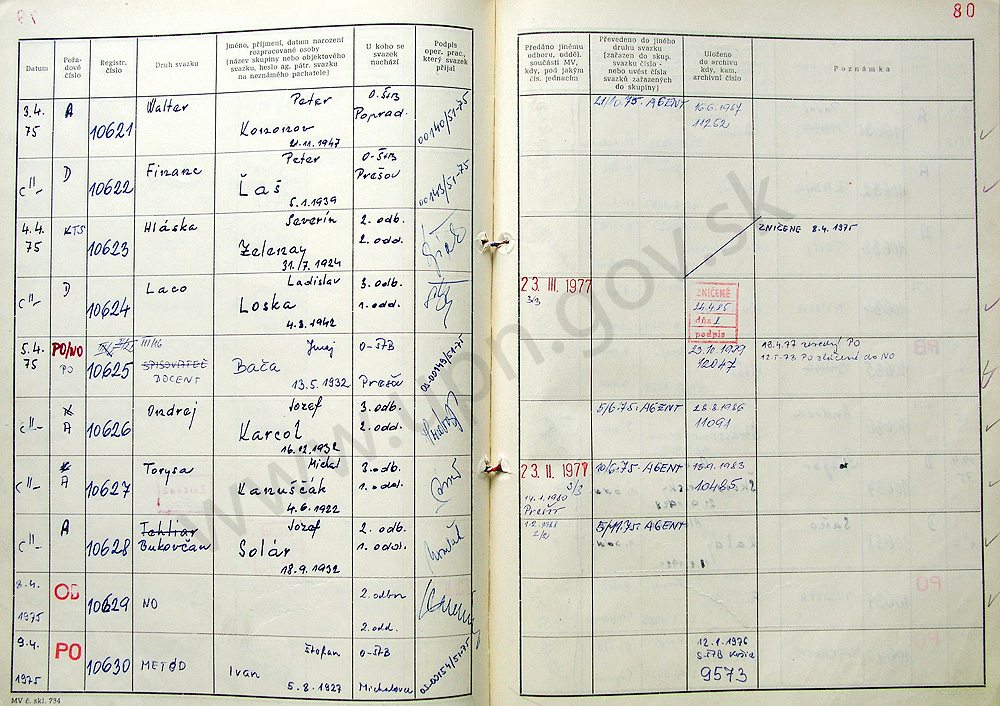 79
Datum
Pořadové číslo
Registr. číslo
Druh svazku
Jméno, příjmení, datum narození
rozpracované osoby
(název skupiny nebo objektového
svazku, heslo ag. pátr. svazku
na neznámého pachatele)
U koho se
svazek
nachází
Podpis
oper. prac.,
který svazek
přijal
3.4.
75
A
10621
Walter
Peter
Kononov
21.11.1947
O-ŠtB
Poprad
00140/51-75
c"-
D
10622
Financ
Peter
Laš
5.1.1939
O-ŠtB
Prešov
00143/51-75
4.4.
75
KTS
10623
Hláska
Severín
Zelenay
31.7.1924
2. odb.
2. odd.
c"-
D
10624
Laco
Ladislav
Loska
4.8.1942
3. odb.
1. odd.
5.4.
75
PO/NO
PO
10625
III/16
SPISOVATEĽ
DOCENT
Juraj
Bača
13.5.1932
O-ŠTB
Prešov
00149/51-75
c"-
K
A
10626
Ondrej
Jozef
Karcol
16.12.1932
3. odb.
2. odd.
c"-
K
A
10627
Torysa
Michal
Kanuščák
4.6.1922
3. odb.
1. odd.
c"-
A
10628
Tehliar
Bukovčan
Jozef
Solár
18.9.1932
2. odb.
1. odd.
8.4.
1975
OB
10629
NO
2. odbor
2. odd.
9.4.
1975
PO
10630
METÓD
Štefan
Ivan
5.8.1927
O-ŠTB
Michalovce
00154/51-75
MV č. skl. 734
80
Předáno jinému
odboru, odděl.
součásti MV,
kdy, pod jakým
čís. jednacím
Převedeno do jiného
druhu svazku
(zařazen do skup.
svazku číslo -
nebo uvést čísla
svazků zařazených
do skupiny)
Uloženo
do archivu
kdy, kam,
archivní číslo
Poznámka
21/10.75. AGENT
16.6.1987
11262
ZNIČENÉ 8.4.1975
23. III. 1977
3/3
ZNIČENÉ
dňa
podpis
23.10.1989
12047
18.4.77 PO
PO zmenené do NO
5/6.75. AGENT
28.8.1986
11091
23. II. 1977
3/3
14.1.1980
Prešov
10/6.75. AGENT
15.9.1983
10485
5/11.75. AGENT
12.1.1976
S-ŠTB Košice
9573
www.upn.gov.sk